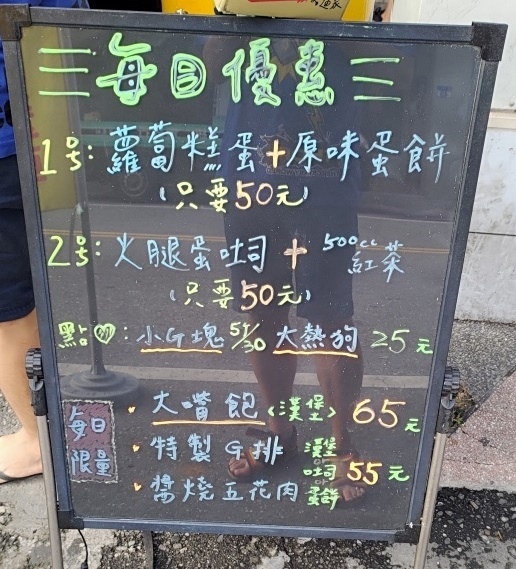 每日優惠
1号:蘿蔔糕蛋+原味蛋餅
(只要50元)
2号:火腿蛋吐司+500cc紅茶
(只要50元)
點心:小G塊5个/30 大熱狗 25元
每日限量
·大嘴飽<漢堡>65元
·特製G排 漢堡
吐司 55元
·醬燒五花肉 蛋餅